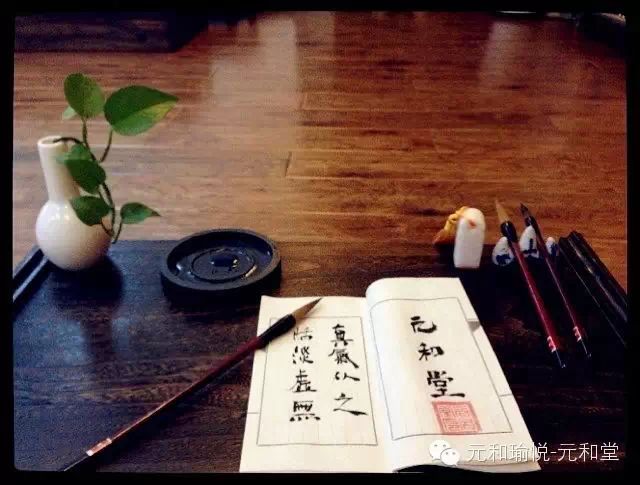 恬淡虚無
真氣从之
元和堂
元和瑜悦-元和堂